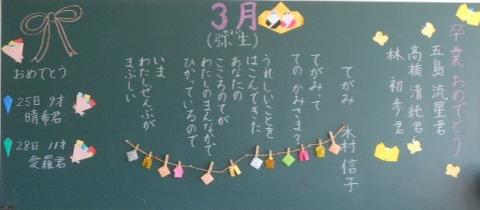 卒業おめでとう
五島 流星君
高橋 清純君
林 初歩君
3月
(弥生)
てがみ
木村 信子
てがみって
てのかみさま?
うれしいことを
はこんできた
あなたの
こころのてが
わたしのまんなかで
ひかっているので
いま
わたしぜんぶが
まぶしい
おめでとう
25日 9才
晴希君
28日 11才
愛羅君